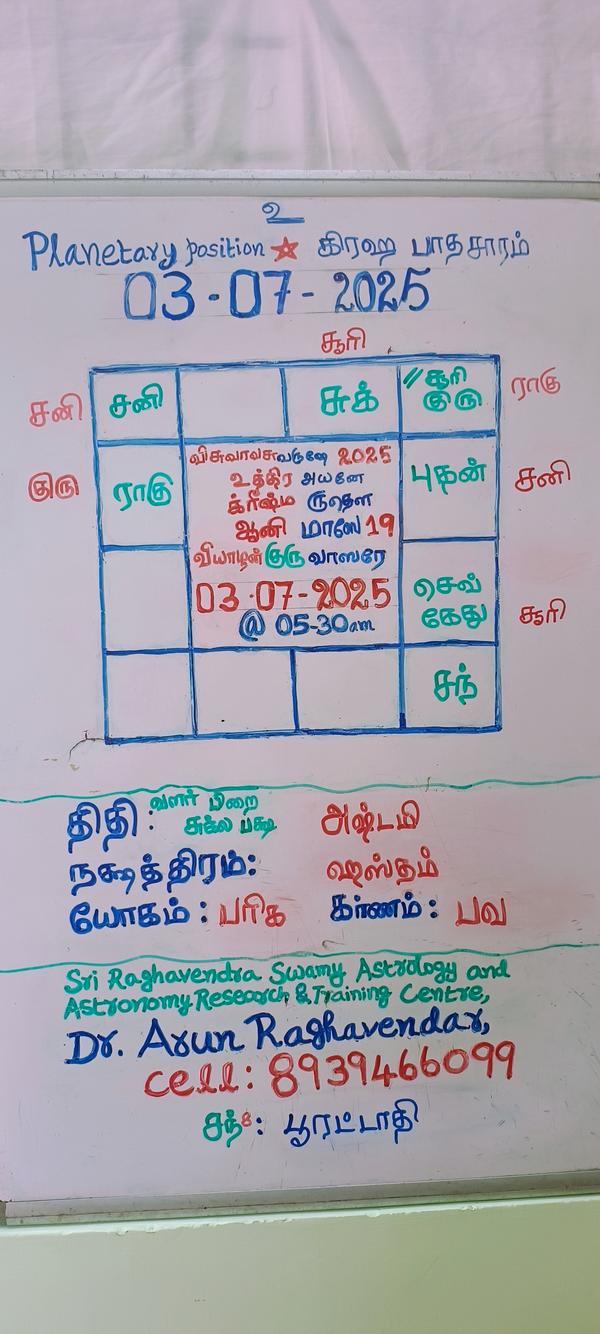 உ
Planetary position ☆ கிரஹ பாதசாரம்
03-07-2025
சூரி
சனி சனி சுக் // சூரி குரு ராகு
குரு ராகு புதன் சனி
விசுவாவசுவருஷே 2025
உத்திர அயனே
க்ரீஷ்ம ருதௌ
ஆனி மாஸே 19
வியாழன் குரு வாஸரே
03-07-2025
@ 05-30am
செவ் கேது சூரி
சந்
திதி: வளர் பிறை சுக்ல பக்ஷ அஷ்டமி
நக்ஷத்திரம்: ஹஸ்தம்
யோகம்: பரிக கர்ணம்: பவ
Sri Raghavendra Swamy Astrology and
Astronomy Research & Training Centre,
Dr. Arun Raghavendar,
cell: 8939466099
சந்8: பூரட்டாதி